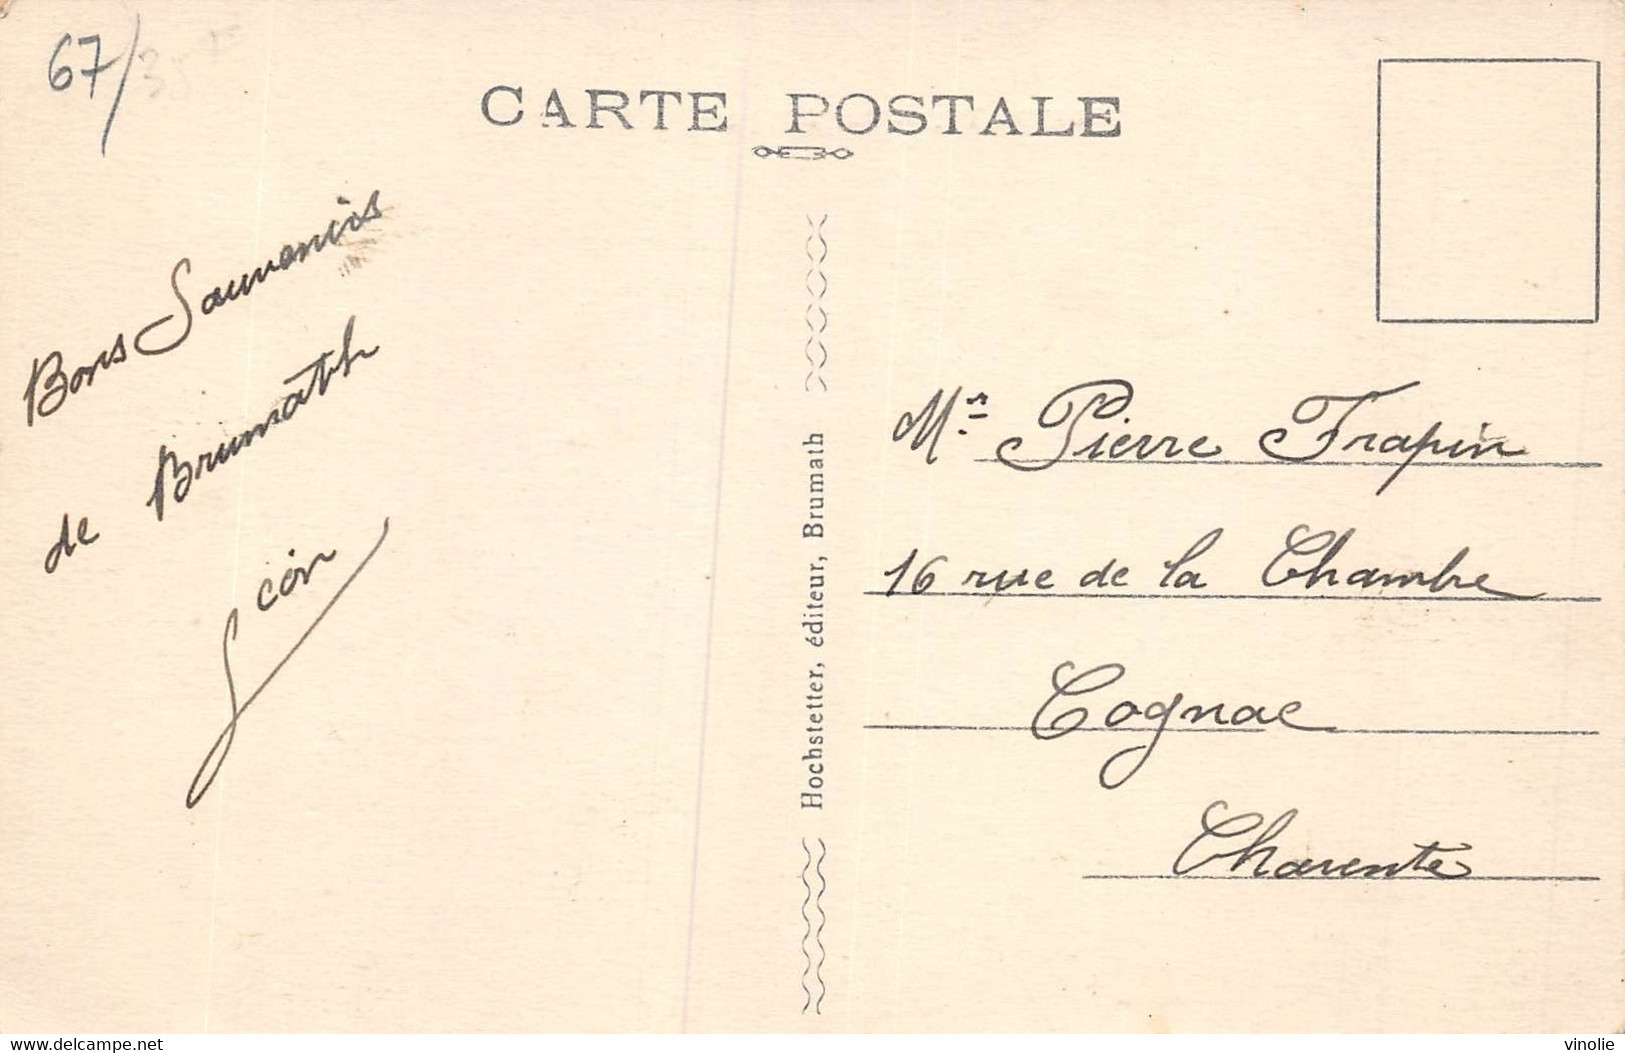 67/
CARTE POSTALE
Bons Souvenirs
de Brumath
Mr. Pierre Frapin
16 rue de la Chambre
Cognac
Charente
Hochstetter, éditeur, Brumath
www.delcampe.net
vinolie